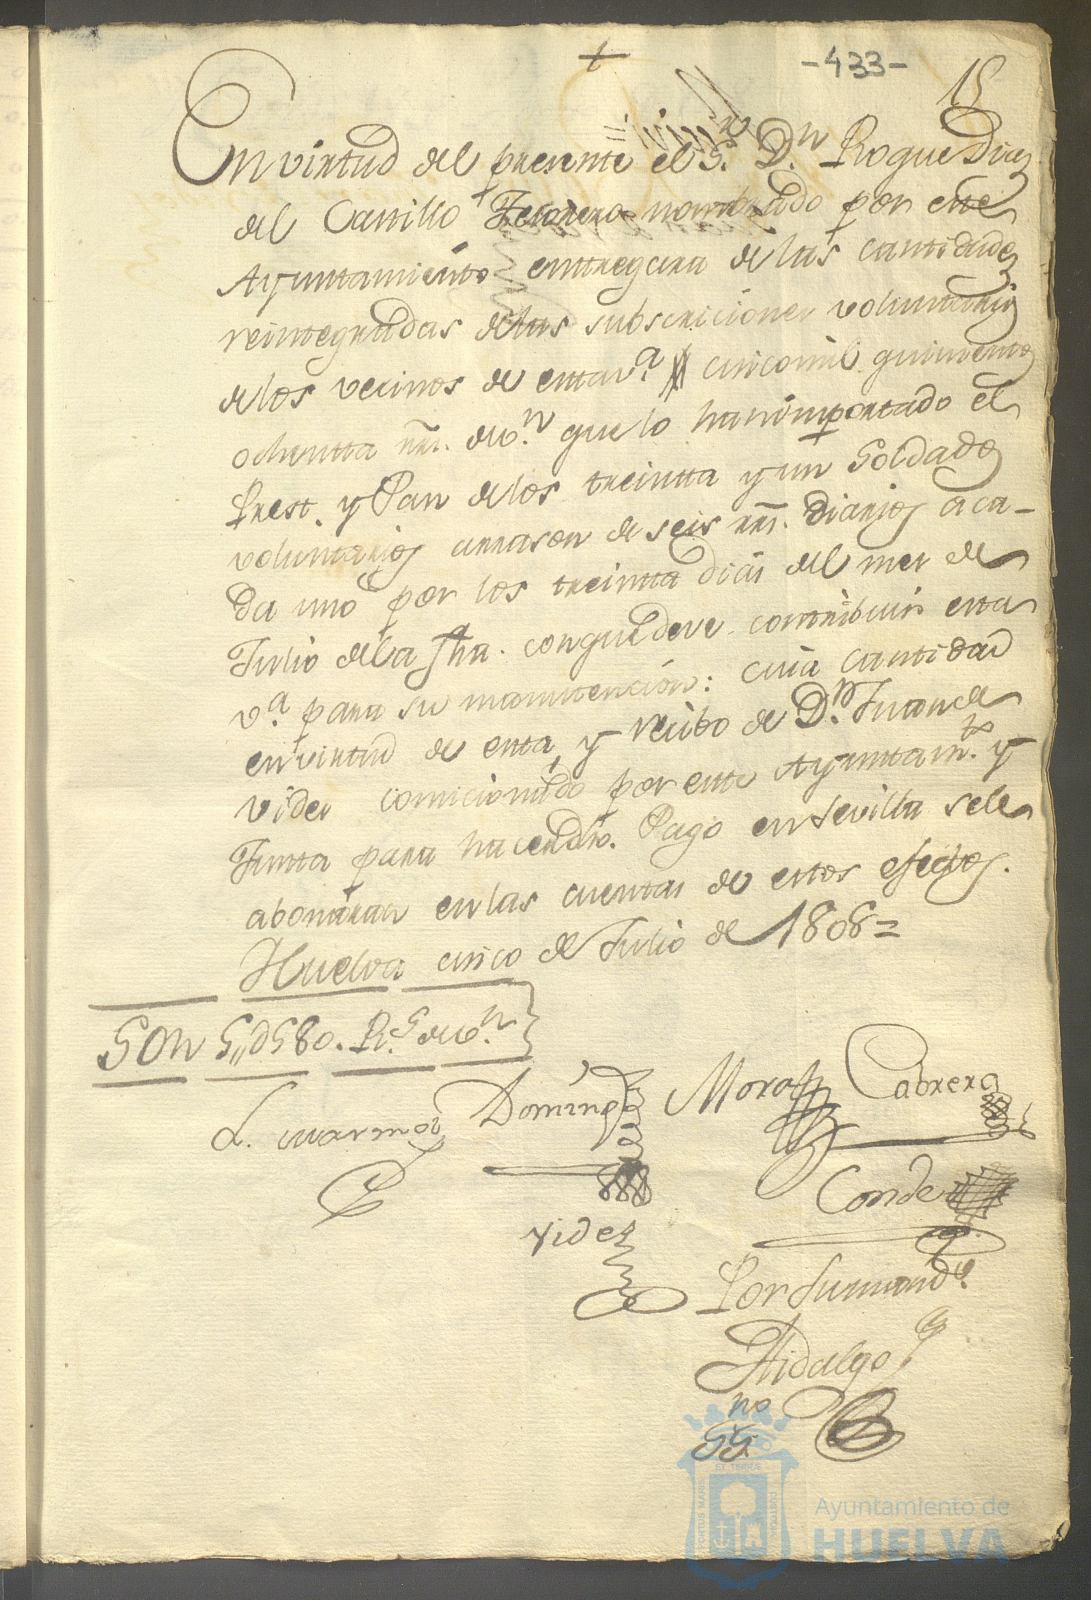 -433-
15
En virtud del presente el Sr. Dn Roque Diaz
del Castillo Tesorero nombrado por este
Ayuntamiento entregara de las cantidades
reintegradas delas subscriciones voluntarias
delos vecinos de esta va. cinco mil quinientos
ochenta rrs. de vn. que lo han importado el
Prest. y Pan delos treinta y un Soldados
voluntarios arrason de seis rrs. diarios a ca-
da uno por los treinta dias del mes de
Julio dela fha. con que deve contribuir esta
va. para su manutencion: cuia cantidad
en virtud de esta, y recibo de Dn Juan de
Vides comicionado por este Ayuntamto. y
Junta para hacer dho. Pago en Sevilla sele
abonaran en las cuentas de estos efectos.
Huelva cinco de Julio de 1808=
SON 5,,d580. Rs. de vn.
Domingo
Mora
Cabrera
Conde
Vides
Por su mando.
Hidalgo
no
SS.
Ayuntamiento de
HUELVA